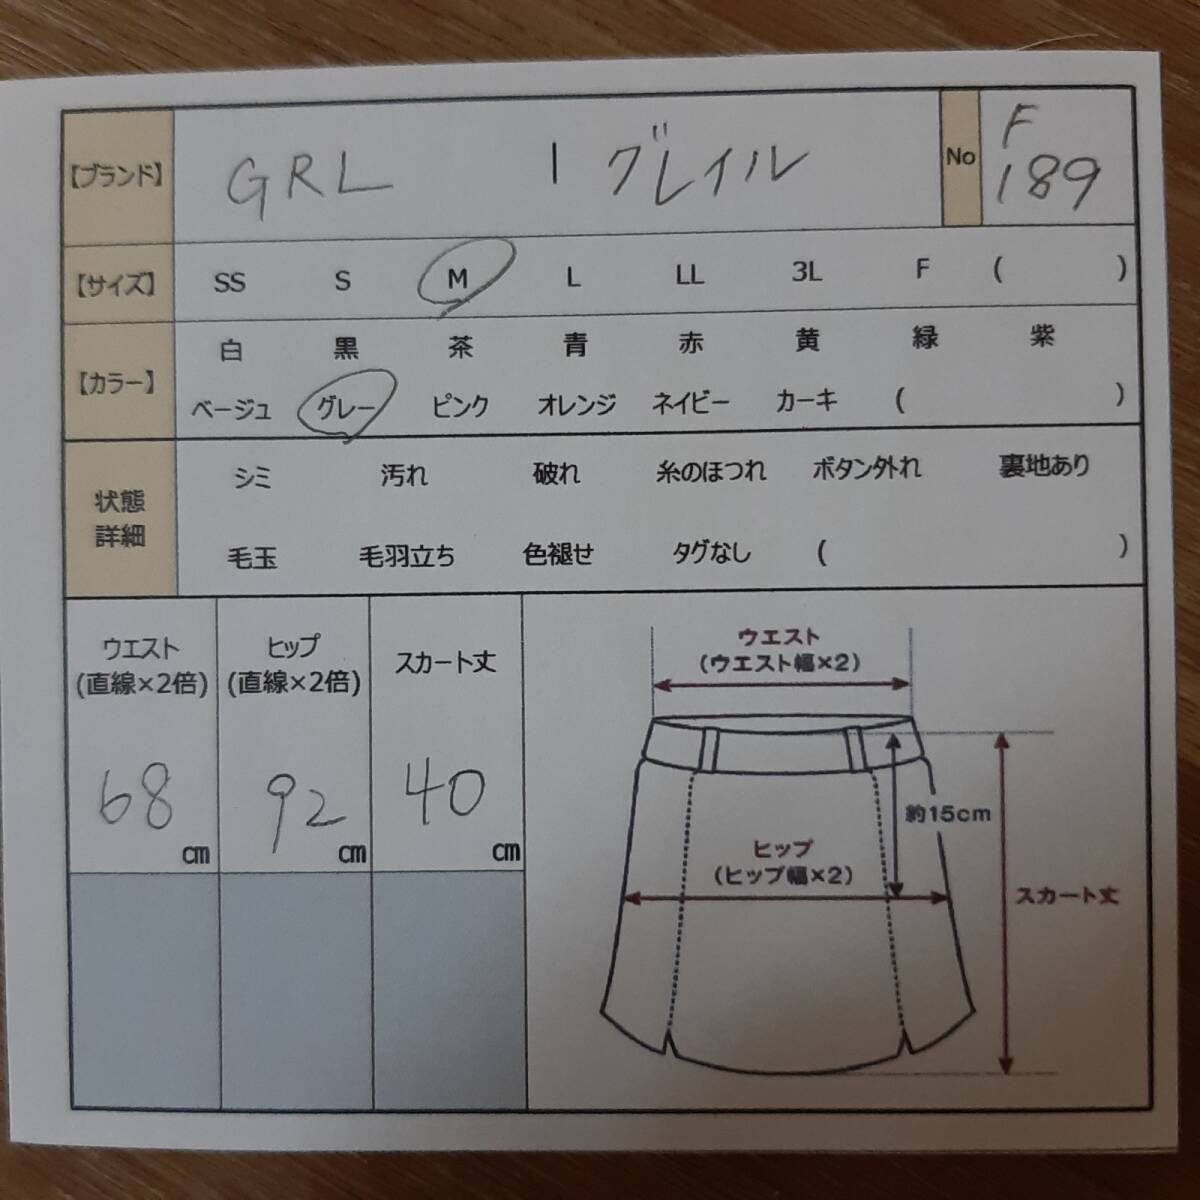 【ブランド】 GRL | グレイル No F
189
【サイズ】 SS S M L LL 3L F ( )
【カラー】 白 黒 茶 青 赤 黄 緑 紫
ベージュ グレー ピンク オレンジ ネイビー カーキ ( )
状態
詳細
シミ 汚れ 破れ 糸のほつれ ボタン外れ 裏地あり
毛玉 毛羽立ち 色褪せ タグなし ( )
ウエスト
(直線×2倍)
68
cm
ヒップ
(直線×2倍)
92
cm
スカート丈
40
cm
ウエスト
(ウエスト幅×2)
約15cm
ヒップ
(ヒップ幅×2)
スカート丈